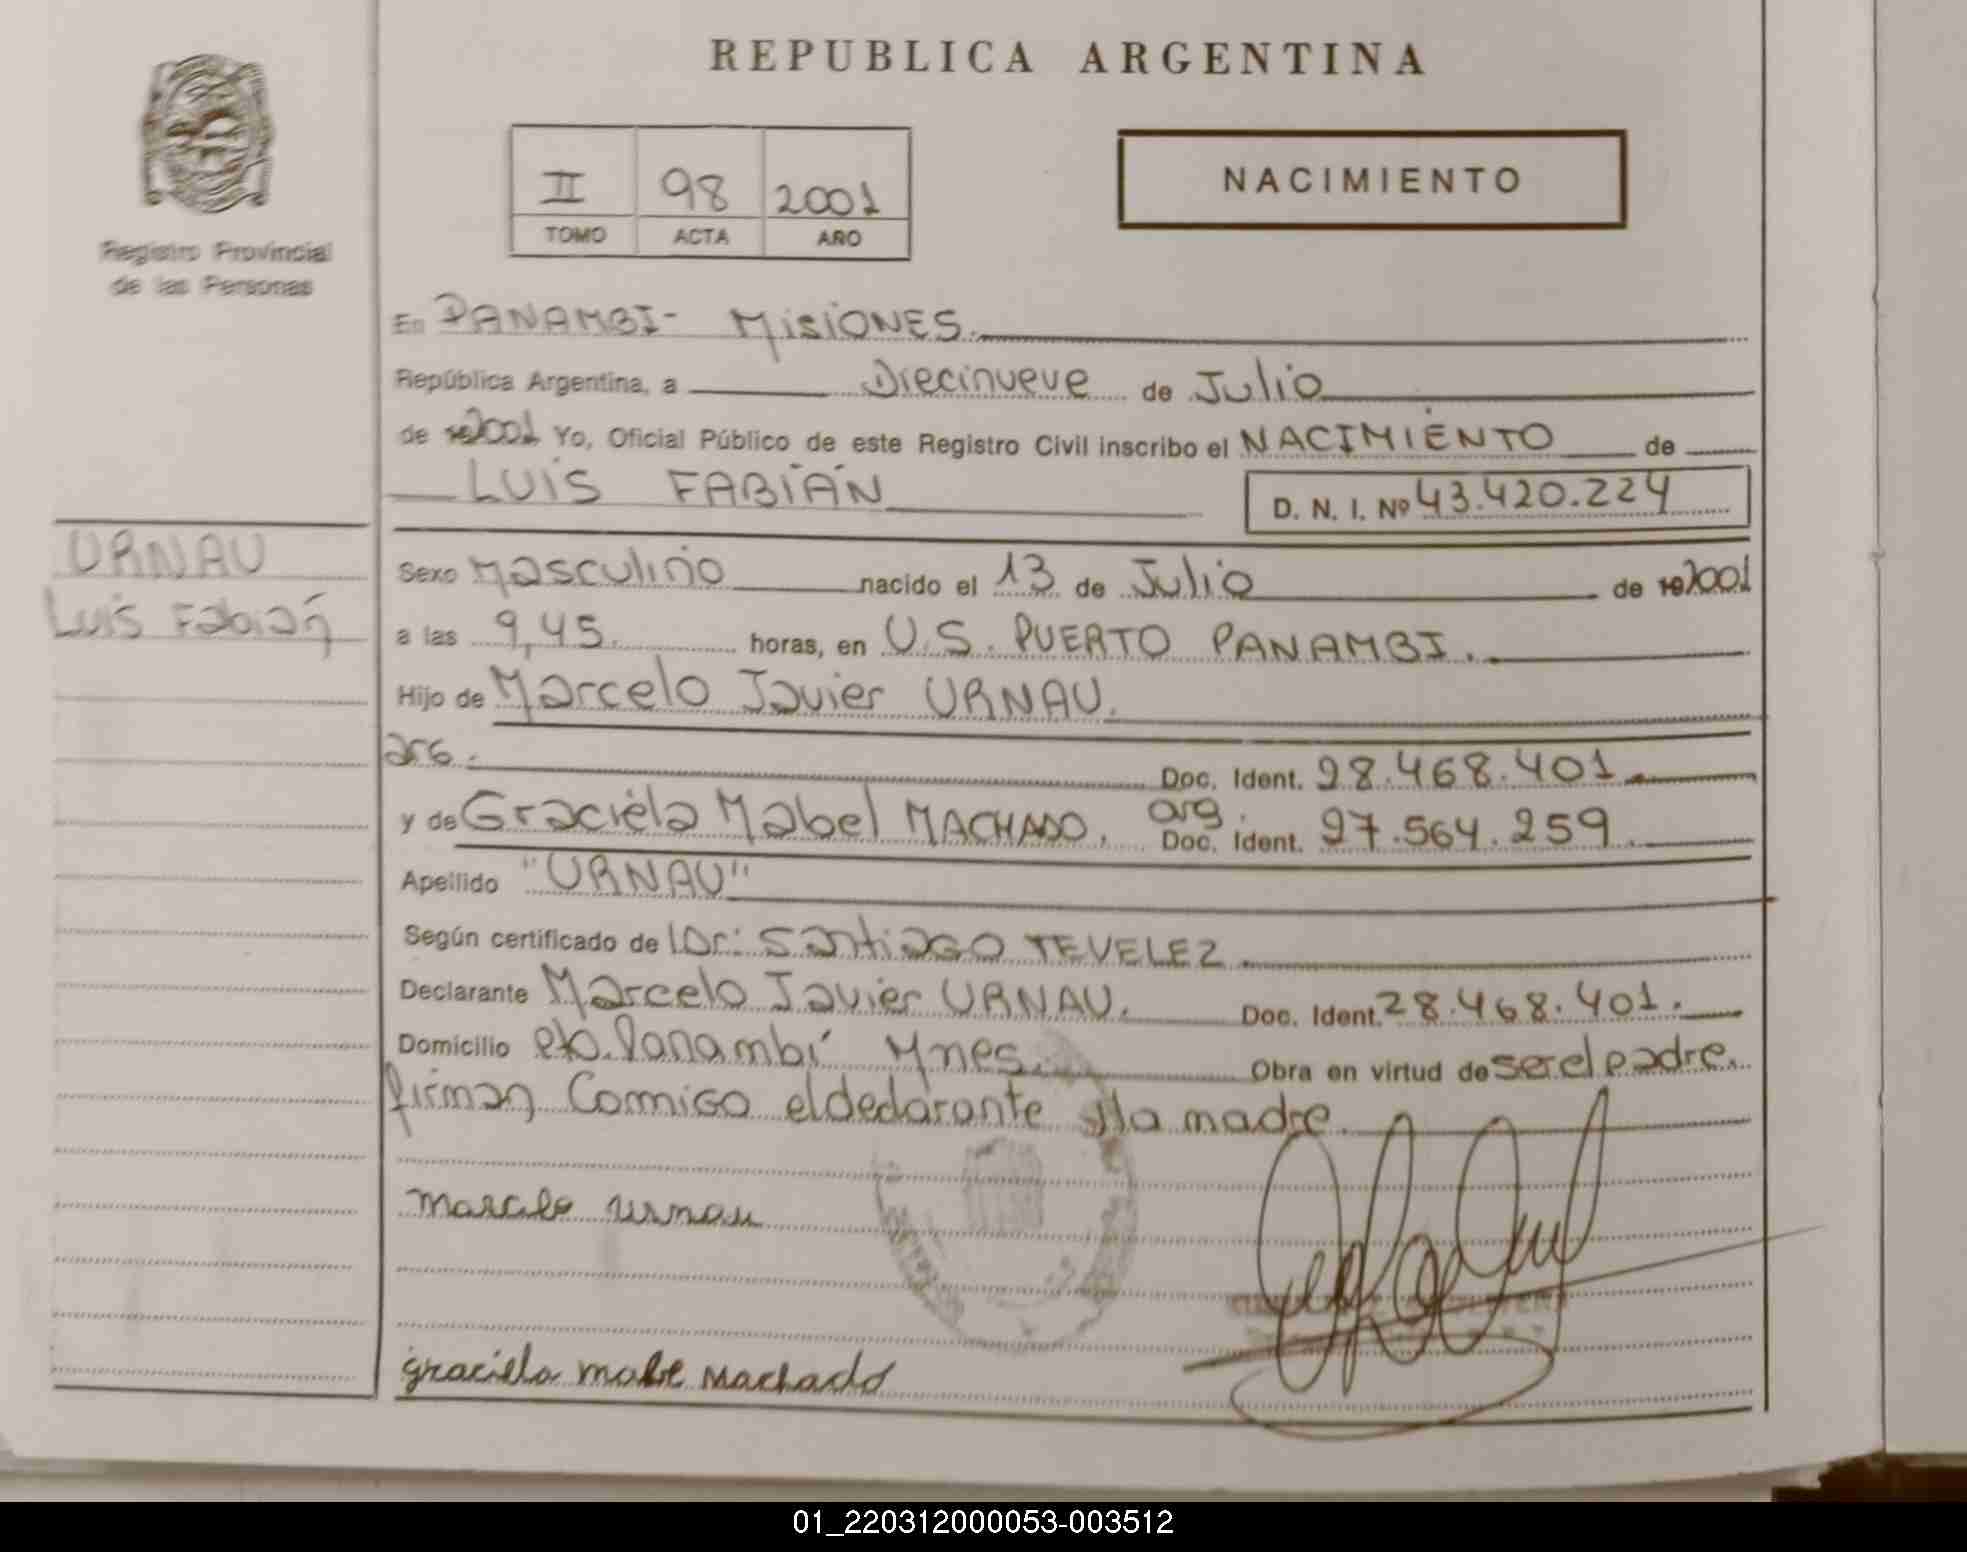 REPUBLICA ARGENTINA
II 98 2001
TOMO ACTA AÑO
NACIMIENTO
Registro Provincial
de las Personas
URNAU
Luis Fabián
En PANAMBI- MISIONES.
República Argentina, a Diecinueve de Julio
de 2001 Yo, Oficial Público de este Registro Civil inscribo el NACIMIENTO de
LUIS FABIÁN D. N. I. Nº 43.420.224
Sexo Masculino nacido el 13 de Julio de 2001
a las 9,45. horas, en U.S. PUERTO PANAMBI.
Hijo de Marcelo Javier URNAU.
arg. Doc. Ident. 28.468.401
y de Graciela Mabel MACHADO. arg. Doc. Ident. 27.564.259
Apellido "URNAU"
Según certificado de Dr: Santiago TEVELEZ
Declarante Marcelo Javier URNAU. Doc. Ident. 28.468.401.
Domicilio pto. Panambí Mnes. Obra en virtud de ser el padre.
firman Comigo el declarante y la madre.
marcelo urnau
graciela mabe Machado
01_220312000053-003512